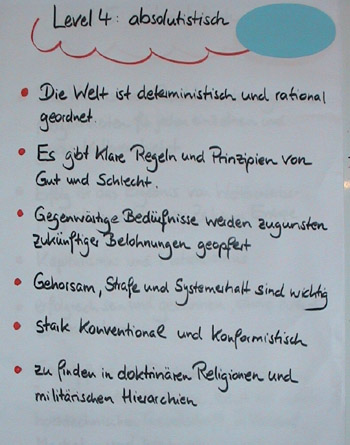 Level 4: absolutistisch
Die Welt ist deterministisch und rational
geordnet.
Es gibt klare Regeln und Prinzipien von
Gut und Schlecht.
Gegenwärtige Bedüfnisse werden zugunsten
zukünftiger Belohnungen geopfert
Gehorsam, Strafe und Systemerhalt sind wichtig
stark konventional und konformistisch
zu finden in doktrinären Religionen und
militärischen Hierarchien